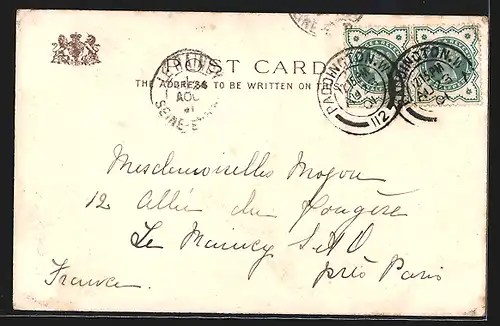 POST CARD
THE ADDRESS TO BE WRITTEN ON THE
PADDINGTON.W.
112
24
AOU
Mesdemoiselles Moyou
12 Allée du Fougère
Le Raincy S et O
près Paris
France.